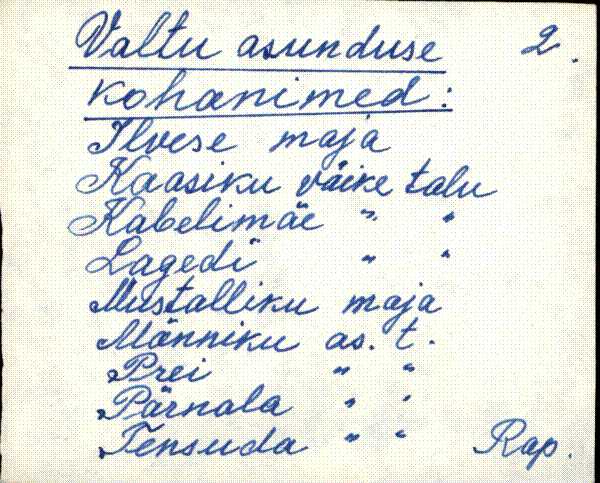 Valtu asunduse 2.
kohanimed:
Ilvese maja
Kaasiku väike talu
Kabelimäe " "
Lagedi " "
Mustalliku maja
Männiku as. t.
Prei " "
Pärnala " "
Tensuda " " Rap.